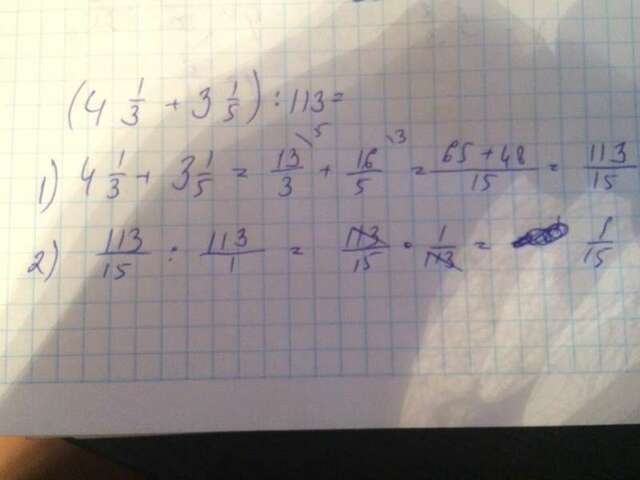 (4 1/3 + 3 1/5) : 113 =
1) 4 1/3 + 3 1/5 = 13/3 \5 + 16/5 \3 = 65+48/15 = 113/15
2) 113/15 : 113/1 = 113/15 · 1/113 = 1/15